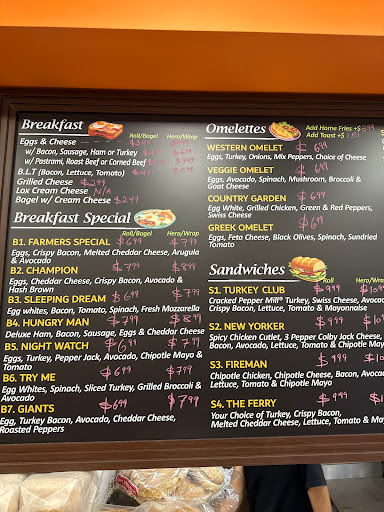 Breakfast
Roll/Bagel Hero/Wrap
Eggs & Cheese
w/ Bacon, Sausage, Ham or Turkey
w/ Pastrami, Roast Beef or Corned Beef
B.L.T (Bacon, Lettuce, Tomato)
Grilled Cheese $2.99
Lox Cream Cheese N/A
Bagel w/ Cream Cheese $2.49
Breakfast Special
Roll/Bagel Hero/Wrap
B1. FARMERS SPECIAL $6.99 $7.99
Eggs, Crispy Bacon, Melted Cheddar Cheese, Arugula
& Avocado
B2. CHAMPION $7.99 $8.99
Eggs, Cheddar Cheese, Crispy Bacon, Avocado &
Hash Brown
B3. SLEEPING DREAM $6.99 $7.99
Egg whites, Bacon, Tomato, Spinach, Fresh Mozzarella
B4. HUNGRY MAN $7.99 $8.99
Deluxe Ham, Bacon, Sausage, Eggs & Cheddar Cheese
B5. NIGHT WATCH $6.99 $7.99
Eggs, Turkey, Pepper Jack, Avocado, Chipotle Mayo &
Tomato
B6. TRY ME $6.99 $7.99
Egg Whites, Spinach, Sliced Turkey, Grilled Broccoli &
Avocado
B7. GIANTS $6.99 $7.99
Egg, Turkey, Bacon, Avocado, Cheddar Cheese,
Roasted Peppers
Omelettes
Add Home Fries +$
Add Toast +$
WESTERN OMELET $6.99
Eggs, Turkey, Onions, Mix Peppers, Choice of Cheese
VEGGIE OMELET $6.99
Eggs, Avocado, Spinach, Mushroom, Broccoli &
Goat Cheese
COUNTRY GARDEN $6.99
Egg White, Grilled Chicken, Green & Red Peppers,
Swiss Cheese
GREEK OMELET $6.99
Eggs, Feta Cheese, Black Olives, Spinach, Sundried
Tomato
Sandwiches
Roll
S1. TURKEY CLUB $9.99
Cracked Pepper Mill® Turkey, Swiss Cheese,
Crispy Bacon, Lettuce, Tomato & Mayonnaise
S2. NEW YORKER $9.99
Spicy Chicken Cutlet, 3 Pepper Colby Jack Cheese,
Bacon, Avocado, Lettuce, Tomato & Chipotle
S3. FIREMAN $9.99
Chipotle Chicken, Chipotle Cheese, Bacon,
Lettuce, Tomato & Chipotle Mayo
S4. THE FERRY $9.99
Your Choice of Turkey, Crispy Bacon,
Melted Cheddar Cheese, Lettuce, Tomato &